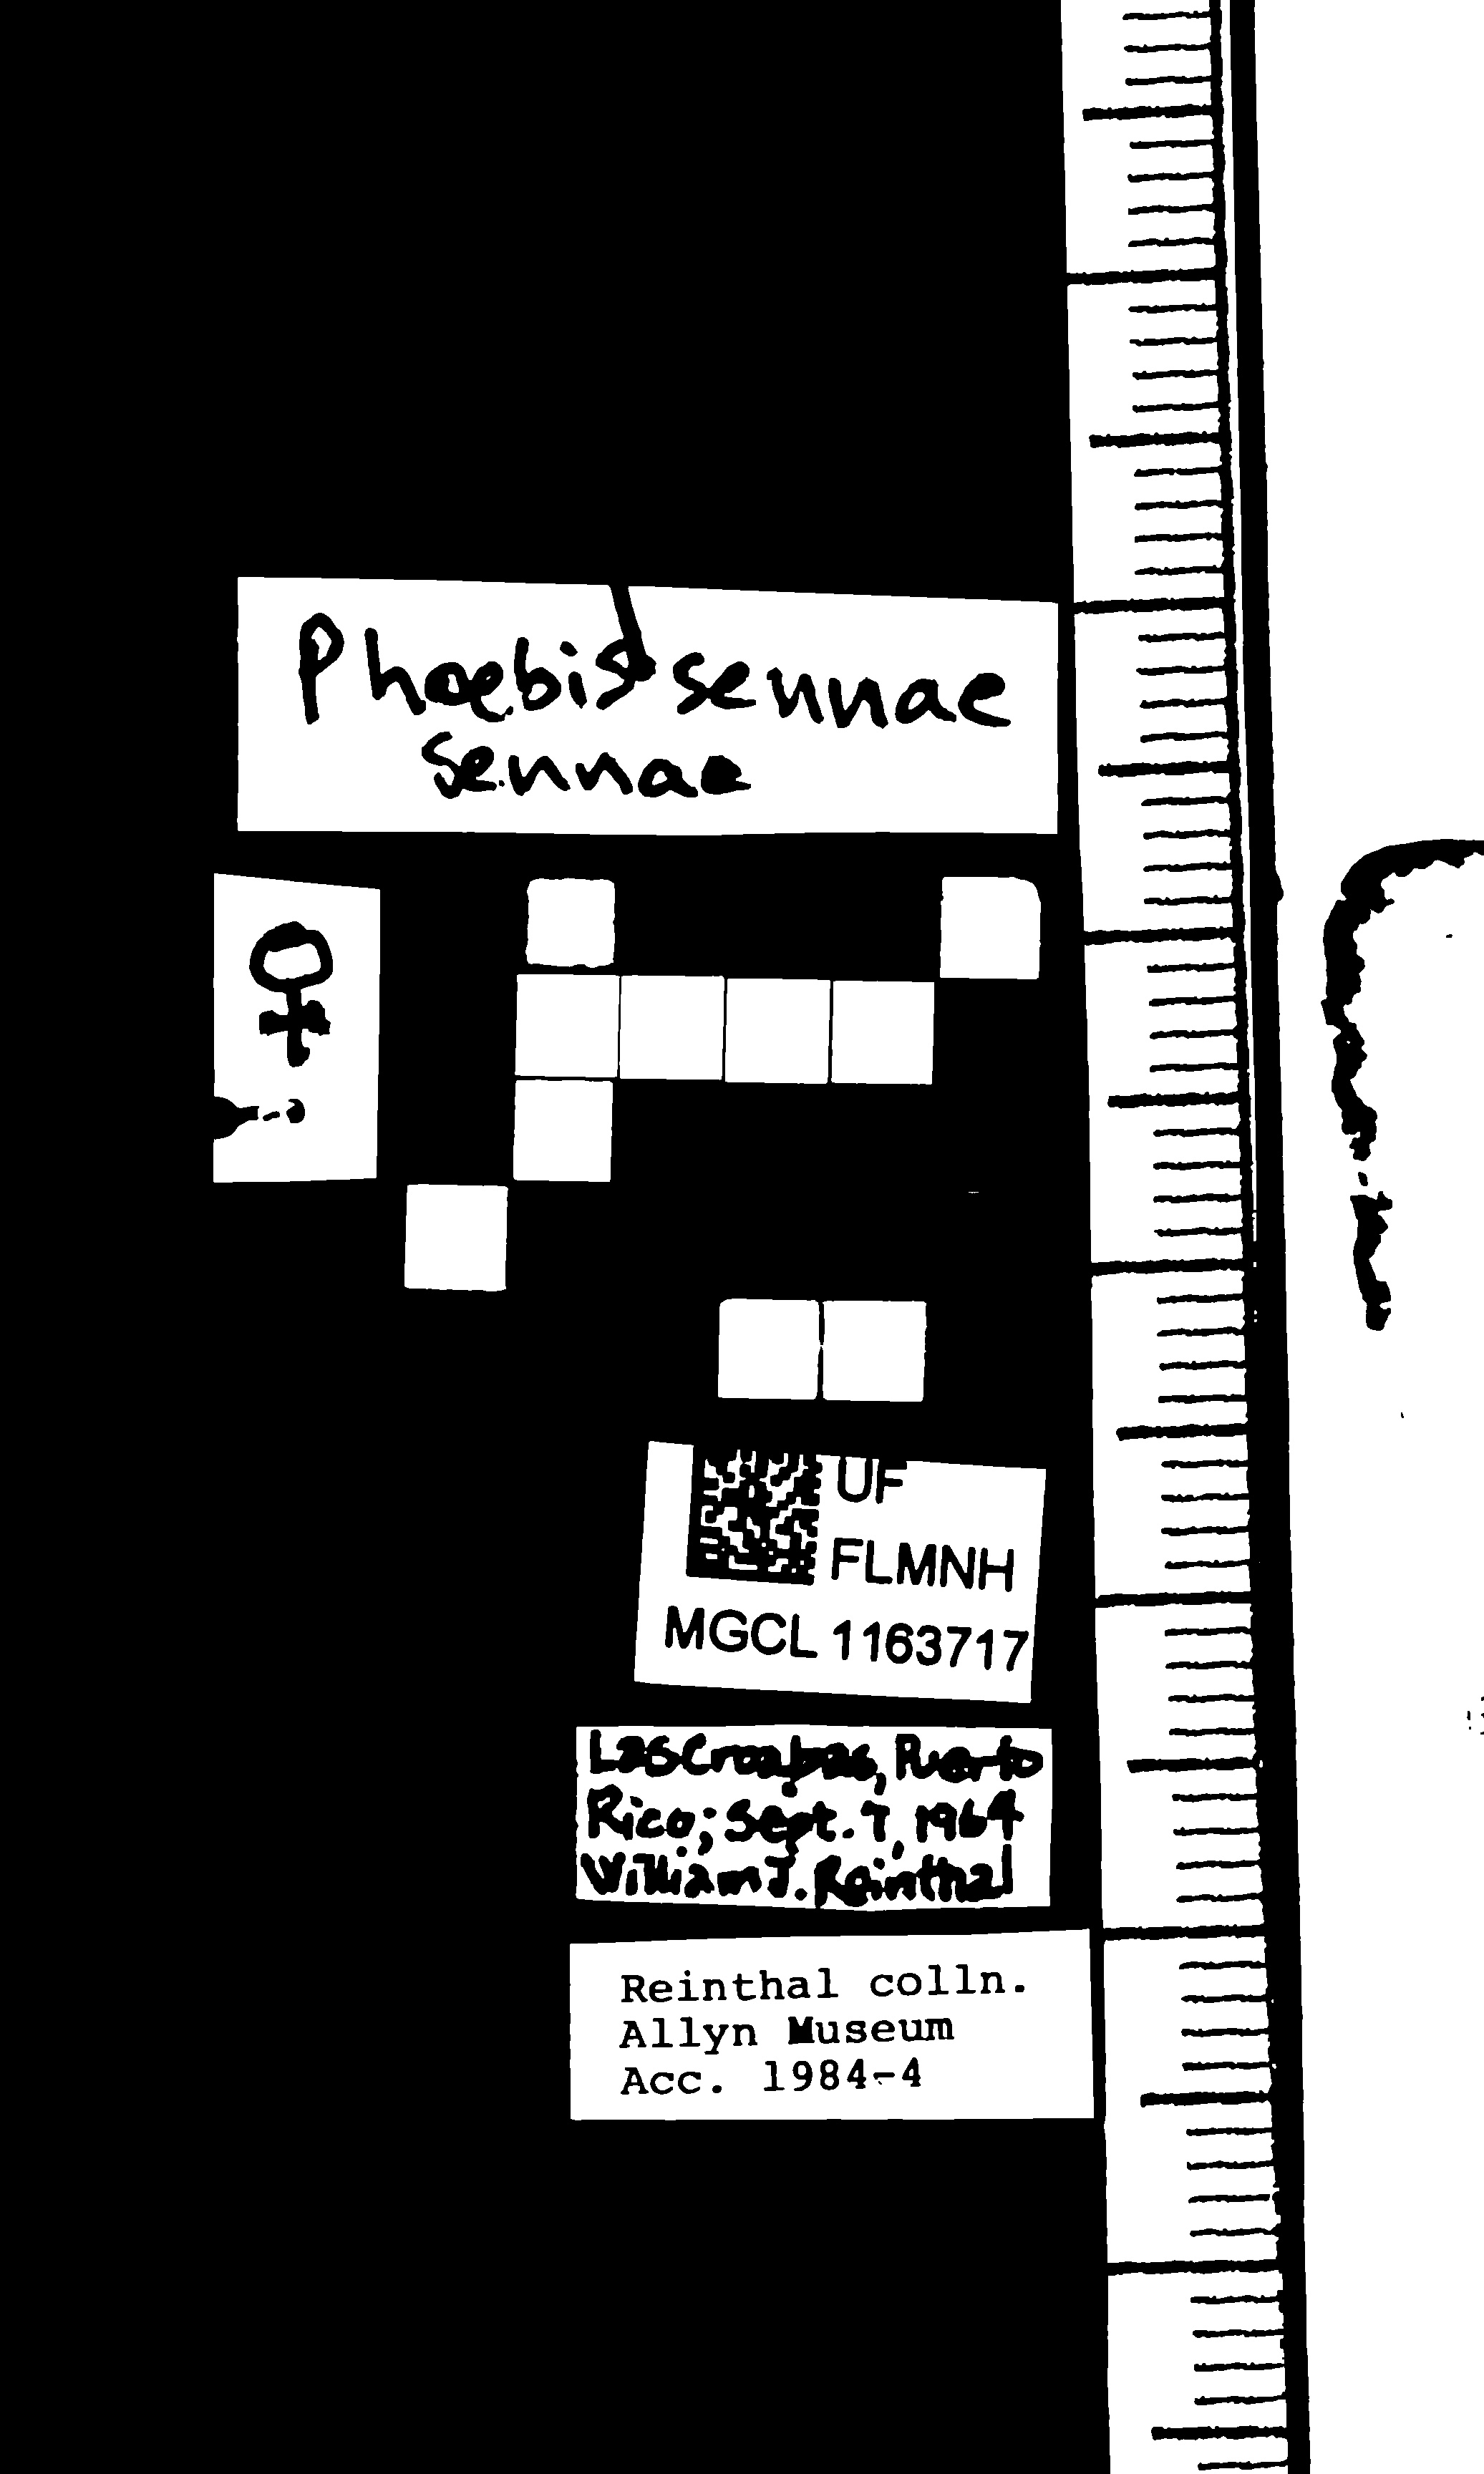 Phoebis sennae
sennae
♀
UF
FLMNH
MGCL 1163717
Las Croabas, Puerto
Rico; Sept. 7, 1964
William J. Reinthal
Reinthal colln.
Allyn Museum
Acc. 1984-4